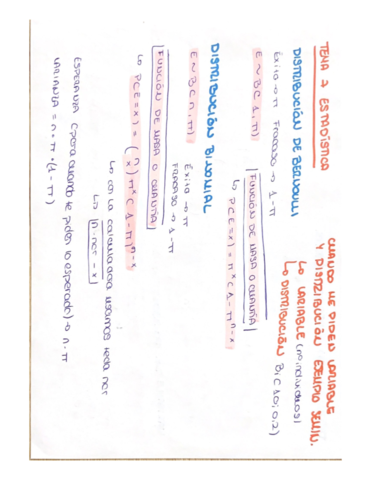 TEMA 7 ESTADÍSTICA
DISTRIBUCIÓN DE BERNOULLI
Éxito → π Fracaso → 1-π
E ~ B(1, π)
FUNCIÓN DE MASA O CUANTÍA
↳ P(E=x) = π^x (1-π)^n-x
DISTRIBUCIÓN BINOMIAL
Éxito → π
Fracaso → 1-π
E ~ B(n, π)
FUNCIÓN DE MASA O CUANTÍA
↳ P(E=x) = (n x) π^x (1-π)^n-x
↳ con la calculadora usamos tecla ncr
↳ n-ncr-x
ESPERANZA (para cuando se piden lo esperado) → n·π
VARIANZA = n·π·(1-π)
CUANDO ME PIDEN VARIABLE
Y DISTRIBUCIÓN EJEMPLO
↳ VARIABLE (nº individuos)
↳ DISTRIBUCIÓN B(10; 0,2)